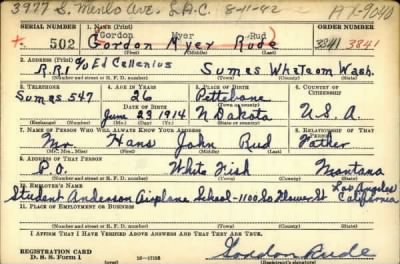 3977 S. Menlo Ave. L.A.C. 8-11-42
A X-9040
SERIAL NUMBER 1. NAME (Print) ORDER NUMBER
Gordon Myer Rud
* 502 Gordon Myer Rude 3341 3841
(First) (Middle) (Last)
2. ADDRESS (Print)
R.R.1 % Ed Callenius Sumas Whatcom Wash.
(Number and street or R. F. D. number) (Town) (County) (State)
3. TELEPHONE 4. AGE IN YEARS 5. PLACE OF BIRTH 6. COUNTRY OF CITIZENSHIP
Sumas 547 26 Pettibone
DATE OF BIRTH
June 23, 1914 N Dakota U.S.A.
(Exchange) (Number) (Mo.) (Day) (Yr.) (State or country)
7. NAME OF PERSON WHO WILL ALWAYS KNOW YOUR ADDRESS 8. RELATIONSHIP OF THAT PERSON
Mr. Hans John Rud Father
(Mr., Mrs., Miss) (First) (Middle) (Last)
9. ADDRESS OF THAT PERSON
P.O. White Fish Montana
(Number and street or R. F. D. number) (Town) (County) (State)
10. EMPLOYER'S NAME
Student Anderson Airplane School-1100 So Flower St Los Angeles California
11. PLACE OF EMPLOYMENT OR BUSINESS
(Number and street or R. F. D. number) (Town) (County) (State)
I AFFIRM THAT I HAVE VERIFIED ABOVE ANSWERS AND THAT THEY ARE TRUE.
REGISTRATION CARD
D. S. S. Form 1 16-17105 Gordon Rude
(Registrant's signature)